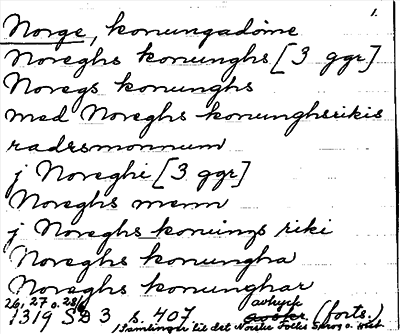 1.
Norge, konungadöme
Noreghs konunghs [3 ggr]
Noregs konunghs
med Noreghs konunghsrikis
radzsmonnum
j Noreghi [3 ggr]
Noreghs menn
j Noreghs konungs riki
Noreghs konungha
Noreghs konunghar
26, 27 o. 28/6 avtryck
1319 SD 3 s. 407. (forts.)
(Samlinger til det Norske Folks Sprog o. Hist.